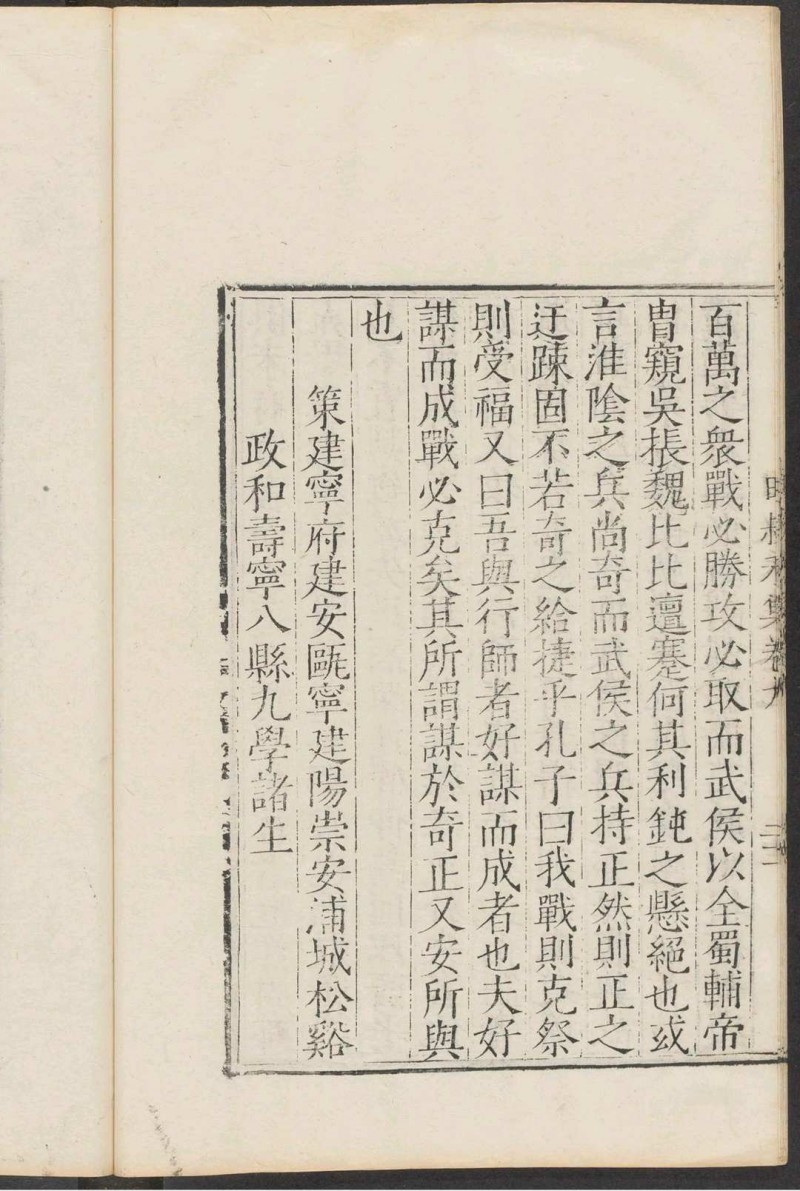 百萬之衆戰必勝攻必取而武侯以全蜀輔帝
胄窺吳掁魏比比邅蹇何其利鈍之懸絕也或
言淮陰之兵尚奇而武侯之兵持正然則正之
迂踈固不若奇之給捷乎孔子曰我戰則克祭
則受福又曰吾與行師者好謀而成者也夫好
謀而成戰必克矣其所謂謀於奇正又安所與
也
策建寧府建安甌寧建陽崇安浦城松谿
政和壽寧八縣九學諸生
集卷九